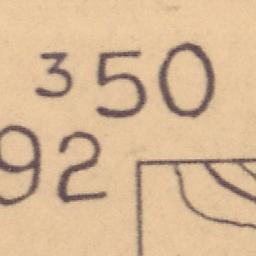 350
92